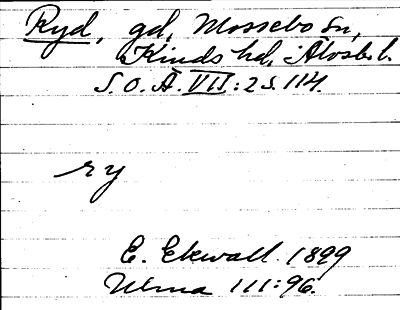 Ryd, gd, Mossebo sn,
Kinds hd, Älvsb. l.
S.O.Ä. VII:2 s. 114.
ry
E. Ekwall 1899
Ulma 111:96.